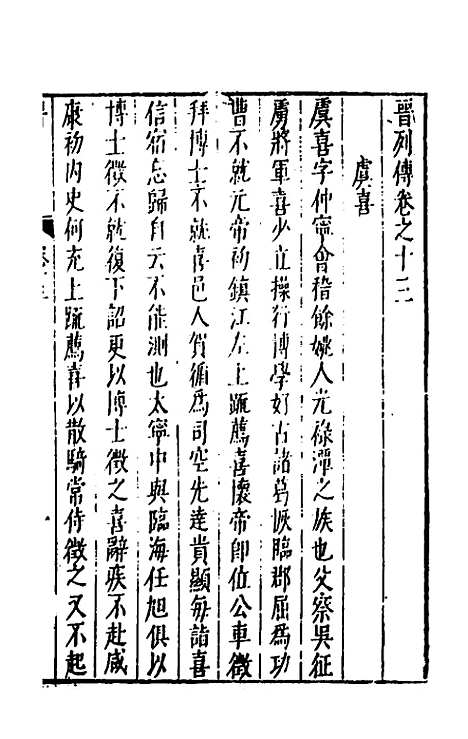 晉列傳卷之十三
虞喜
虞喜字仲寧會稽餘姚人光祿潭之族也父察吳征
虜將軍喜少立操行博學好古諸葛恢臨郡屈爲功
曹不就元帝初鎮江左上䟽薦喜懷帝卽位公車徵
拜博士不就喜邑人賀循爲司空先達貴顯每詣喜
信宿忘歸自云不能測也太寧中與臨海任旭俱以
博士徵不就復下詔更以博士徵之喜辭疾不赴咸
康初內史何充上䟽薦喜以散騎常侍徵之又不起